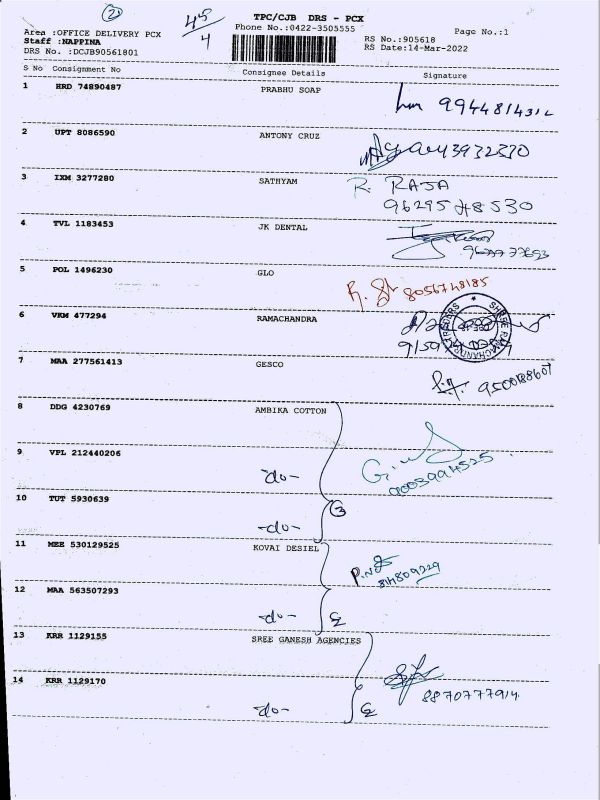 2
45
4
TPC/CJB DRS - PCX
Phone No.:0422-3505555
Page No.:1
Area :OFFICE DELIVERY PCX
Staff :NAPPINA
DRS No. :DCJB90561801
RS No.:905618
RS Date:14-Mar-2022
S No Consignment No Consignee Details Signature
1 HRD 74890487 PRABHU SOAP
9944814314
2 UPT 8086590 ANTONY CRUZ
3 IXM 3277280 SATHYAM R. RAJA
9629548530
4 TVL 1183453 JK DENTAL
5 POL 1496230 GLO
8056748185
6 VKM 477294 RAMACHANDRA
7 MAA 277561413 GESCO
9500188607
8 DDG 4230769 AMBIKA COTTON
9 VPL 212440206 -do-
9003994525
10 TUT 5930639 -do- 3
11 MEE 530129525 KOVAI DESIEL
12 MAA 563507293 -do-
13 KRR 1129155 SREE GANESH AGENCIES
14 KRR 1129170 -do-
8870777914